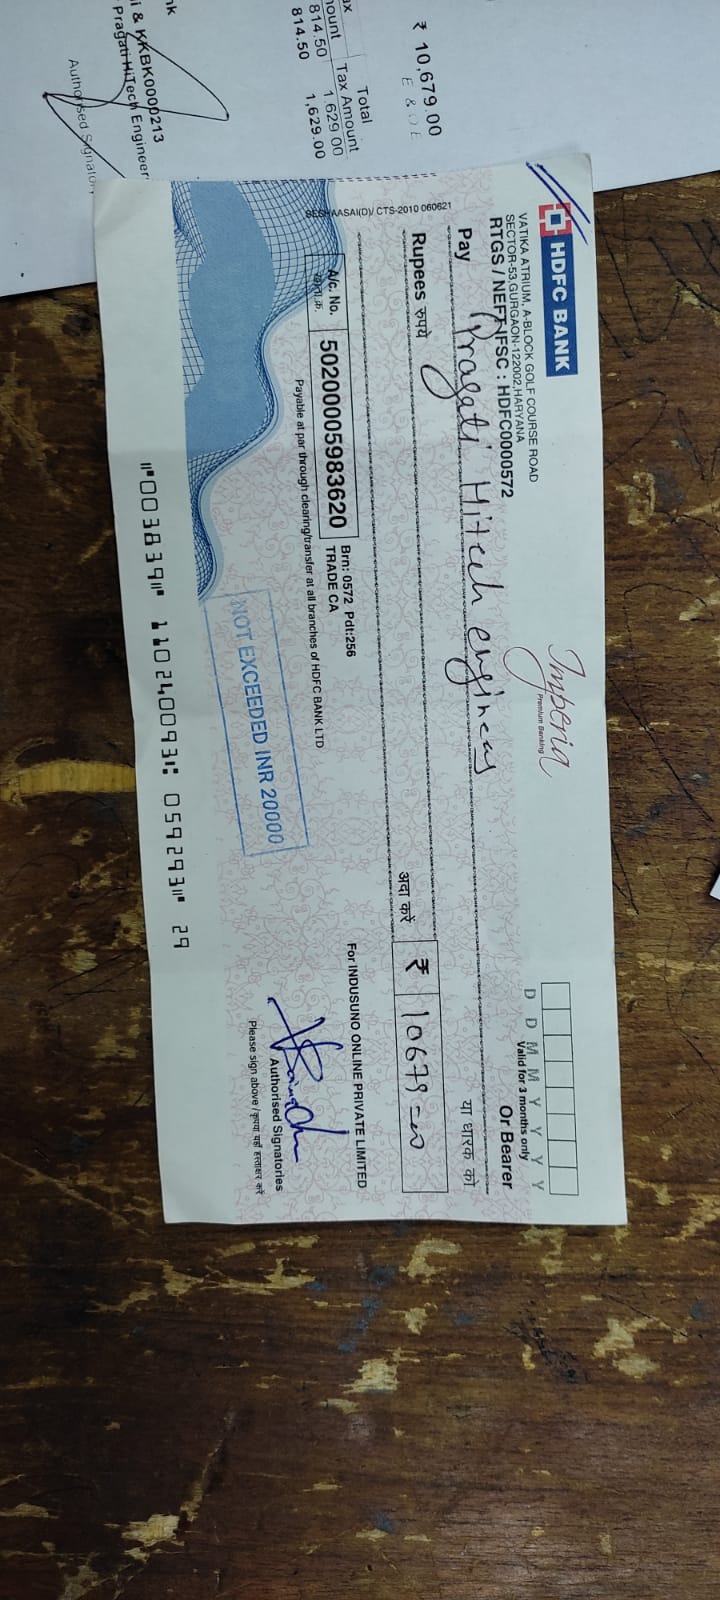 ₹ 10,679.00
E & O E
Total
Tax Amount
1,629.00
1,629.00
814.50
814.50
KKBK0000213
Pragati HiTech Engineer
Authorised Signatory
HDFC BANK
VATIKA ATRIUM, A-BLOCK GOLF COURSE ROAD
SECTOR-53,GURGAON-122002,HARYANA
RTGS / NEFT IFSC : HDFC0000572
Imperia
Premium Banking
D D M M Y Y Y Y
Valid for 3 months only
Pay Pragati Hitech Or Bearer
या धारक को
Rupees रुपये
अदा करें ₹ 10679
A/c. No. 50200005983620
खाता क्र.
Brn: 0572 Pdt:256
TRADE CA
Payable at par through clearing/transfer at all branches of HDFC BANK LTD
For INDUSUNO ONLINE PRIVATE LIMITED
NOT EXCEEDED INR 20000
Authorised Signatories
Please sign above / कृपया यहाँ हस्ताक्षर करें
CTS-2010 060621
⑈003839⑈ 110240093⑆ 059293⑈ 29